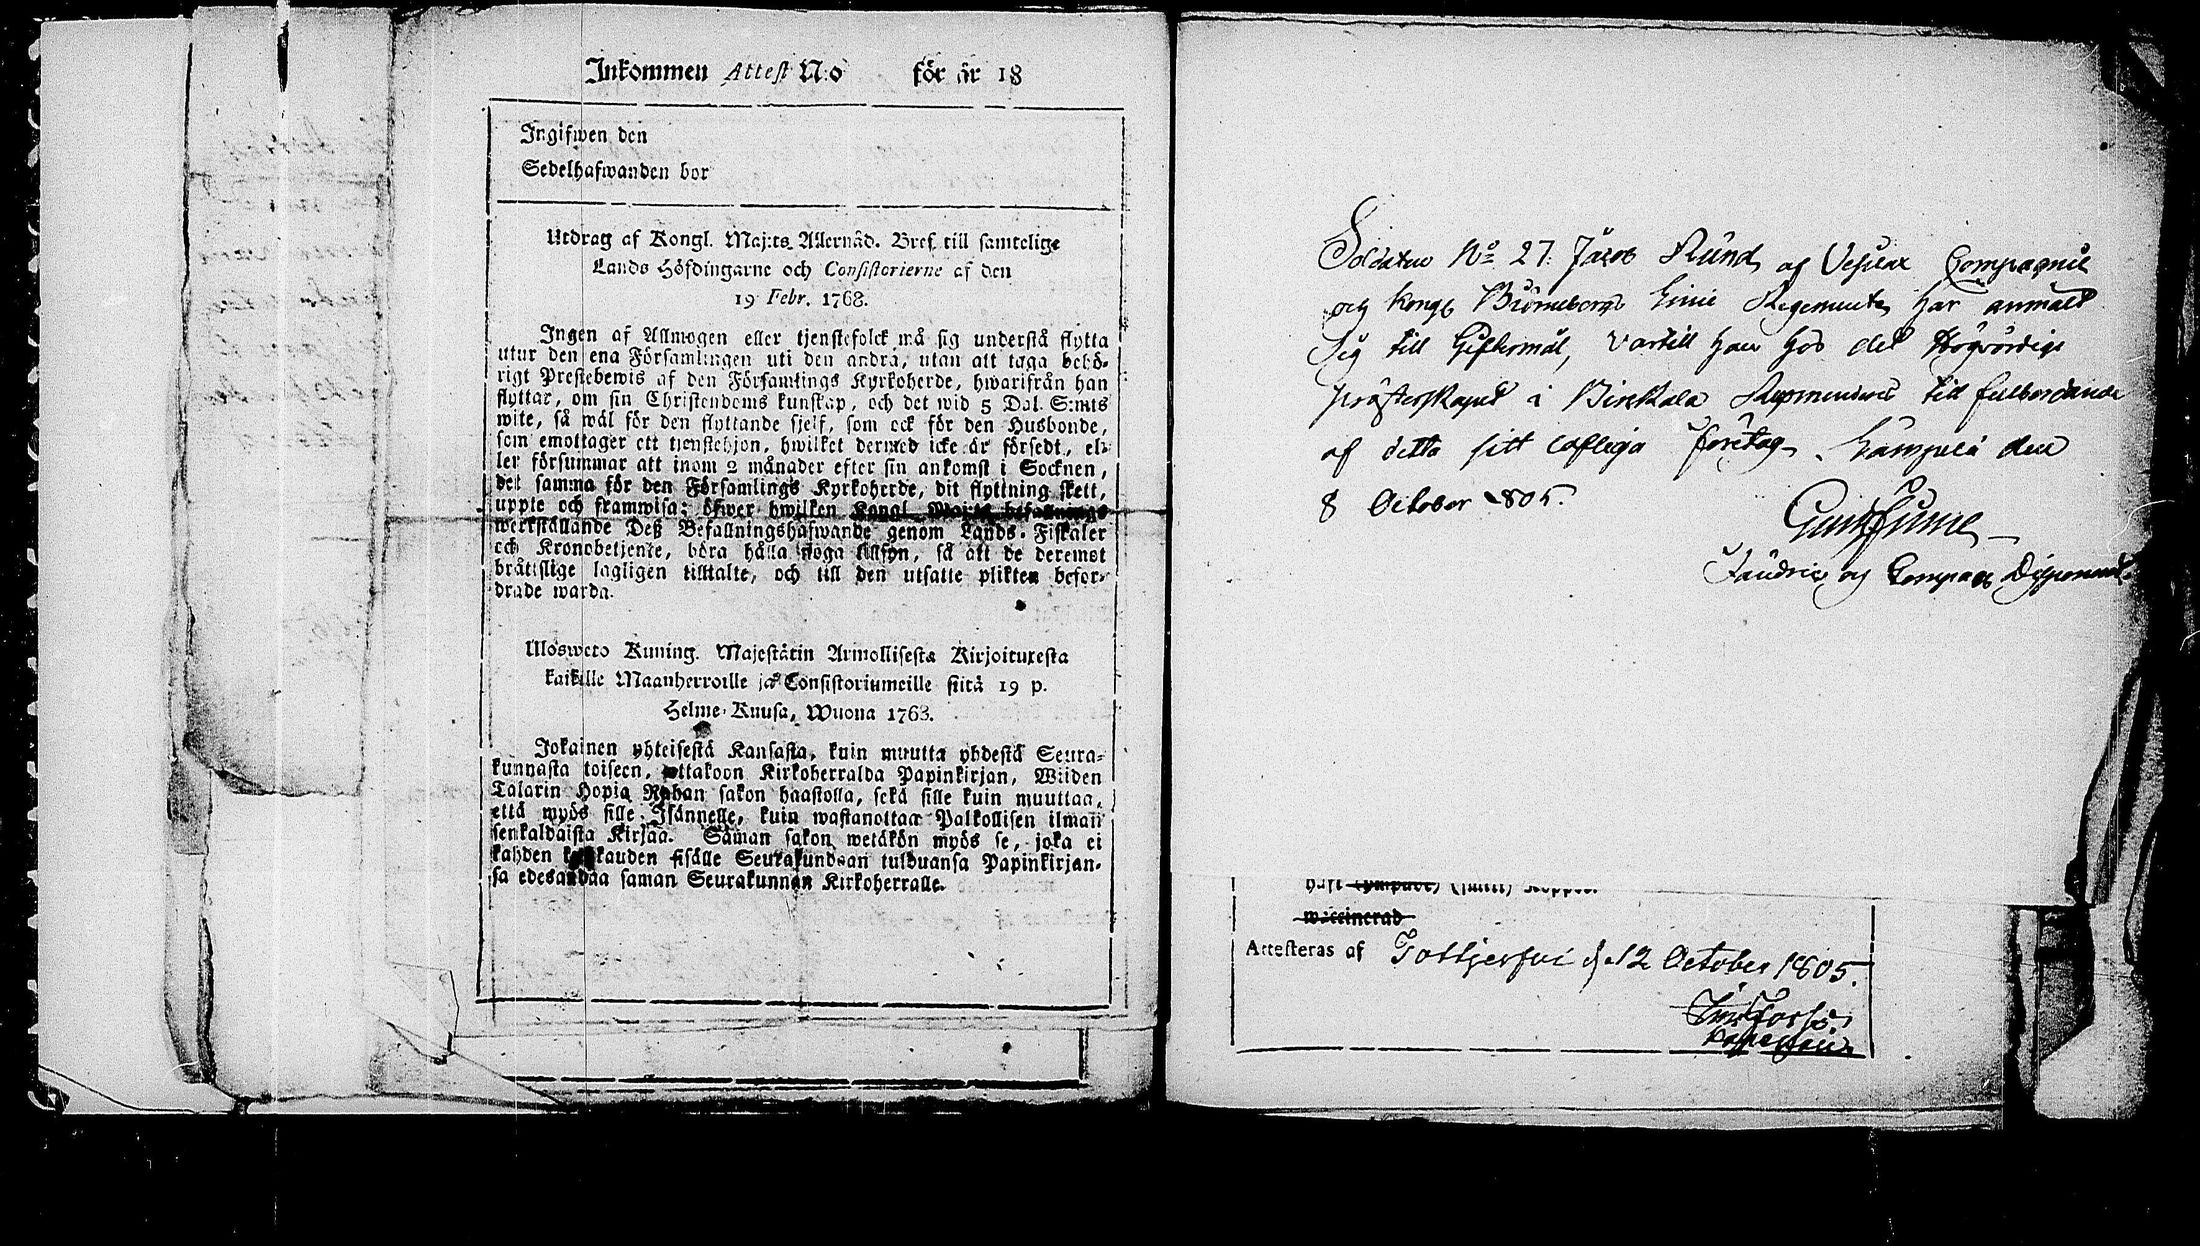 Inkommen Attest N:o för år 18
Ingifwen den
Sedelhafwanden bor
Utdrag af Kongl. Maj:ts Allernåd. Bref till samtelige
Lands Höfdingarne och Consistorierne af den
19 Febr. 1768.
Ingen af Allmogen eller tjenstefolck må sig understå flytta
utur den ena Församlingen uti den andra, utan att taga behö-
rigt Prestebewis af den Församlings Kyrkoherde, hwarifrån han
flyttar, om sin Christendoms kunskap, och det wid 5 Dal. S:mts
wite, så wäl för den flyttande sjelf, som ock för den Husbonde,
som emottager ett tjenstehjon, hwilket dermed icke är försedt, el-
ler försummar att inom 2 månader efter sin ankomst i Socknen,
det samma för den Församlings Kyrkoherde, dit flyttning skett,
uppte och framwisa; öfwer hwilken Kongl. Maj:ts befallnings
werkställande Deß Befallningshafwande genom Lands-Fiskaler
och Kronobetjente, böra hålla noga tillsyn, så att de deremot
bråttslige lagligen tilltalte, och till den utsatte plikten befor-
drade warda.
Ulosweto Kuning. Majestätin Armollisesta Kirjoituxesta
kaikille Maanherroille ja Consistoriumeille siitä 19 p.
Helme-Kuusa, Wuona 1768.
Jokainen yhteisestä Kansasta, kuin muutta yhdestä Seura-
kunnasta toiseen, ottakoon Kirkoherralda Papinkirjan, Wiiden
Talarin Hopia Rahan sakon haastolla, sekä sille kuin muuttaa,
että myös sille Isännelle, kuin wastanottaa Palkollisen ilman
senkaldaista Kirjaa. Saman sakon wetäkön myös se, joka ei
kahden kuukauden sisälle Seurakundaan tulduansa Papinkirjan-
sa edesandaa saman Seurakunnan Kirkoherralle.
Soldaten No 27. Jacob Slund, af Vesilax Compagnie
och Kongl Biörneborgs Linie Regemente, har anmält
sig till Giftermål, vartill han hos det Högvördige
prästerskapet i Birkkala Recommenderas till fulbordande
af detta sitt lofliga företag. Lämpele den
8 October 1805.
Fändric og Compag
wäccinerad
Attesteras af Tottjerfvi d 12 October 1805.